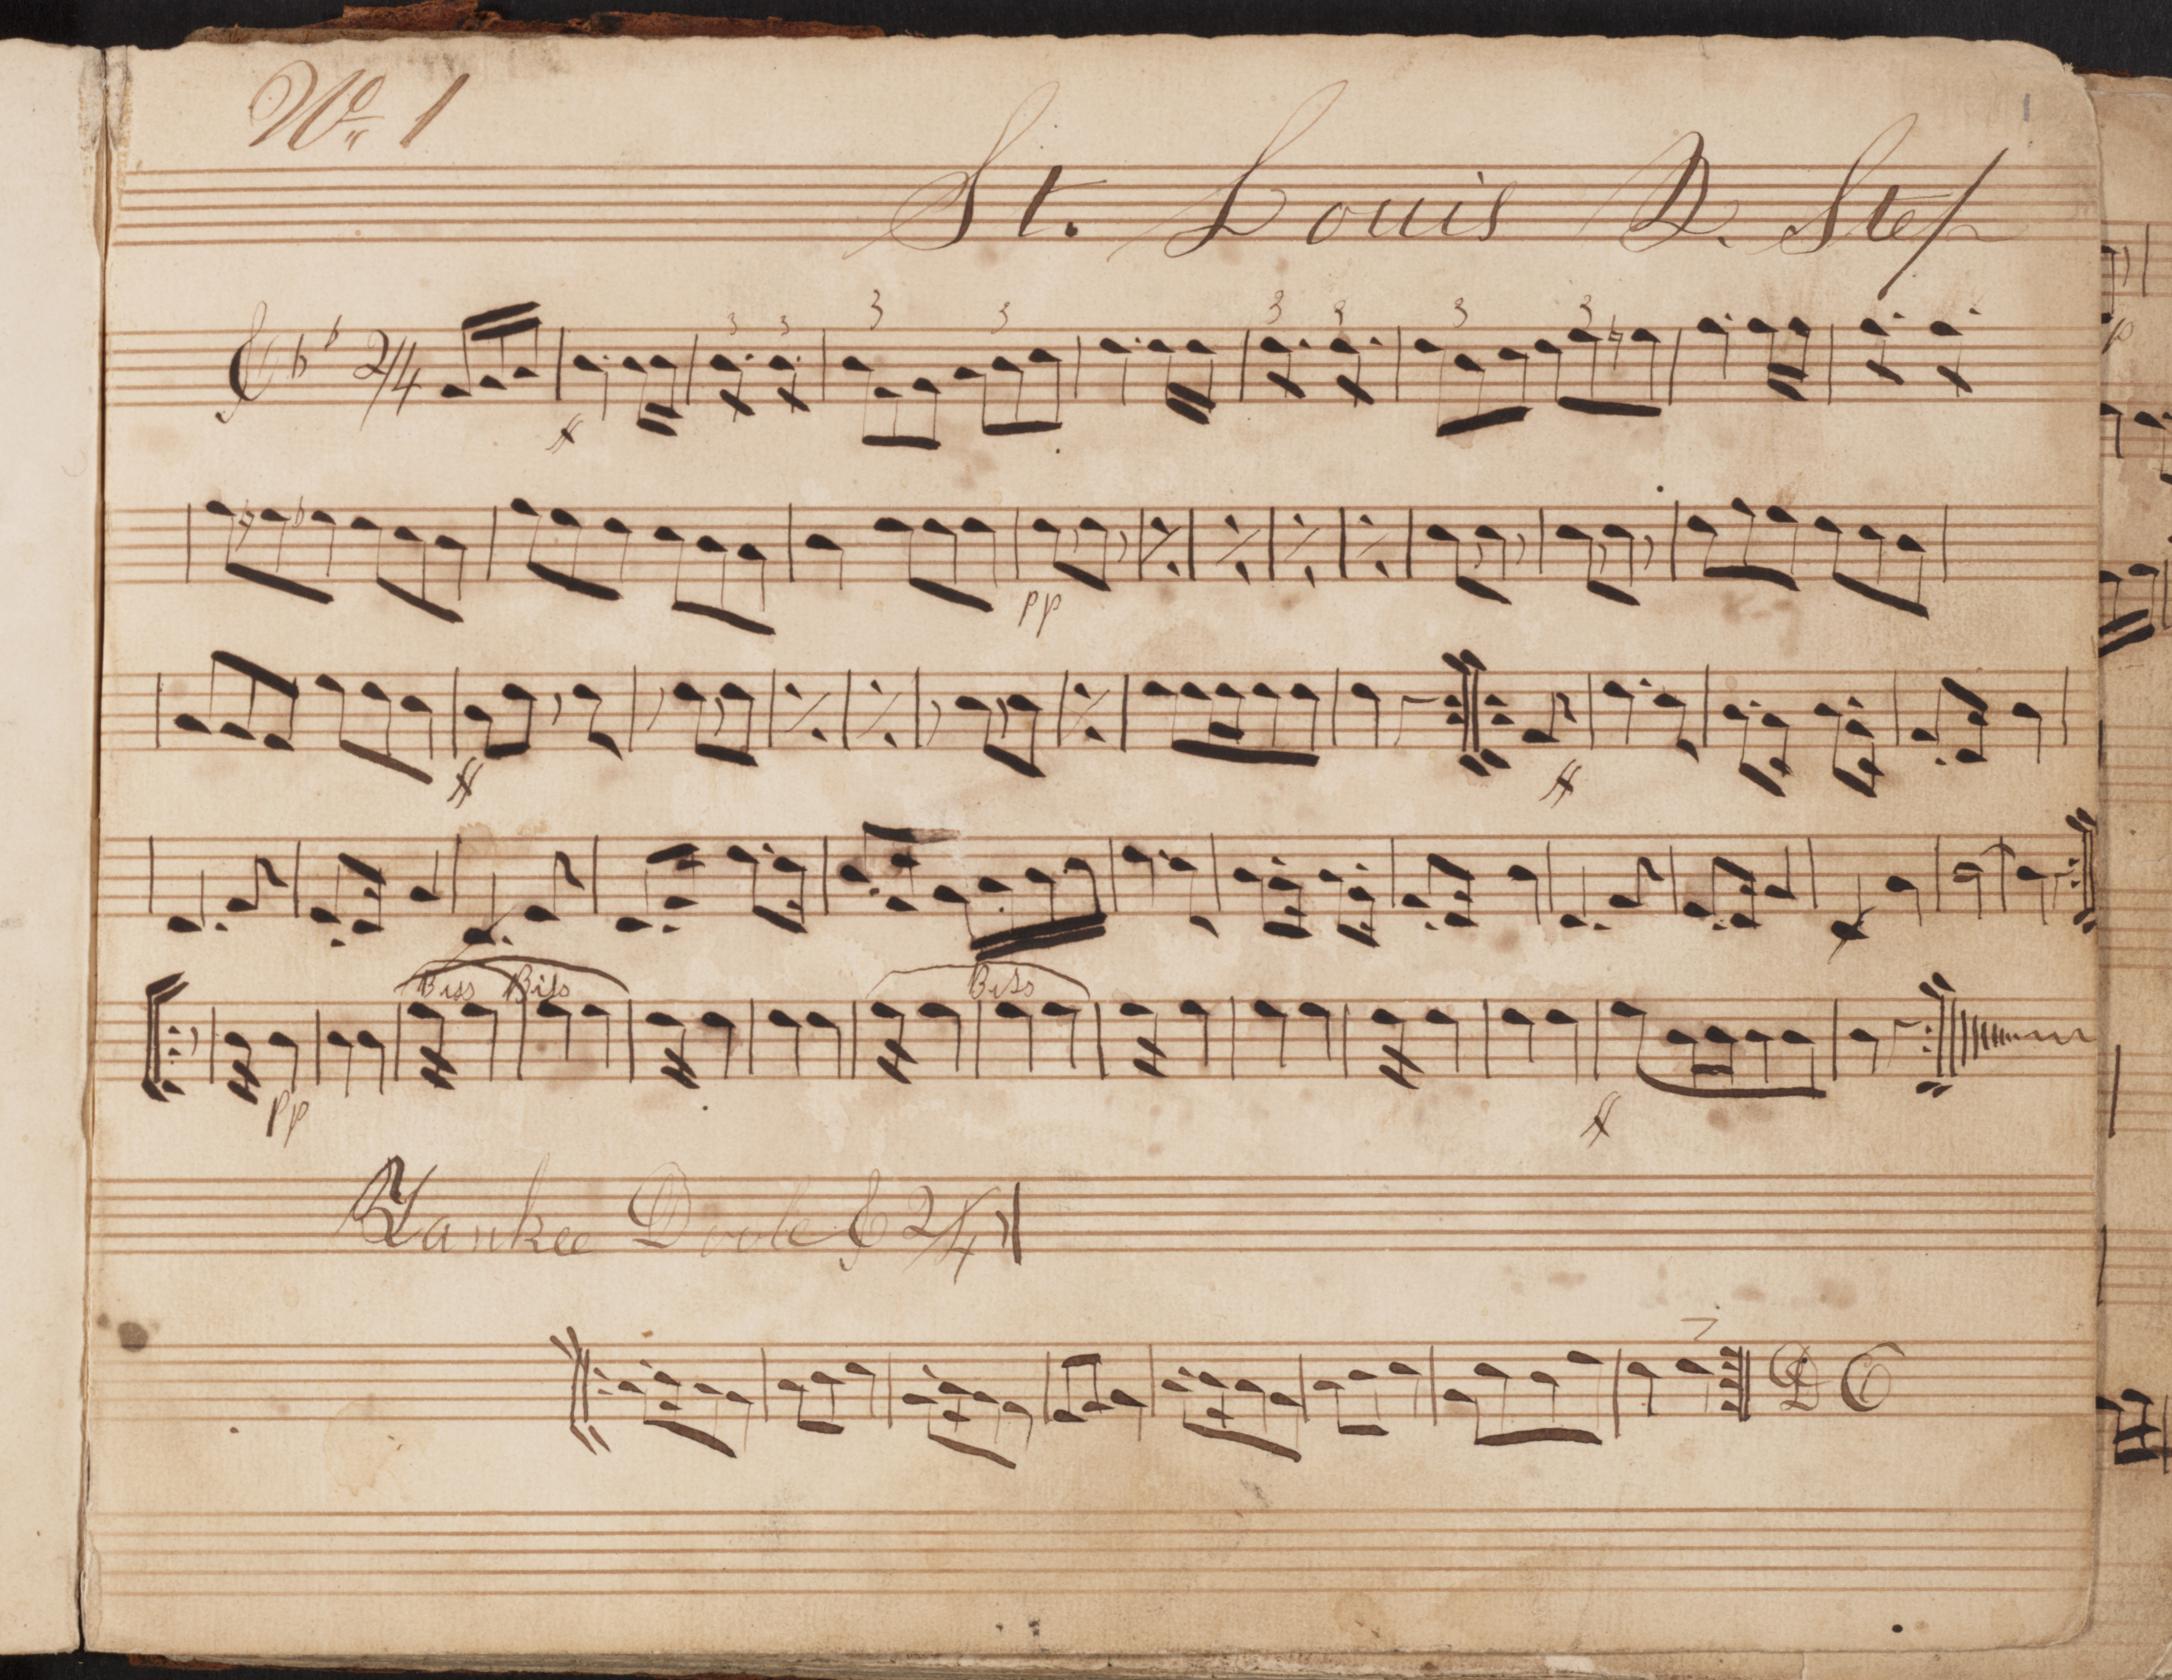 No. 1
1
St. Louis Q. Step
2/4
3 3 3 3 3 3 3 3
ff
pp
ff ff
Biss Biss Biss
pp ff
Yankee Doole 2/4
D C